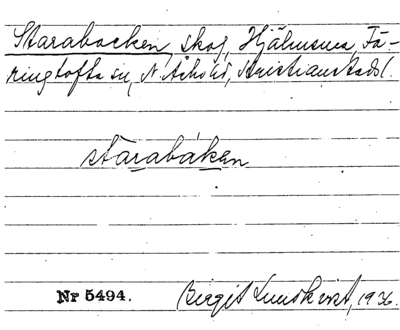 Starabacken, skog, Hjälmsma, Fä-
ringtofta sn, N. Åsbo hd, Kristianstads l.
starabàken
Nr 5494.
Birgit Lundkvist, 1936.